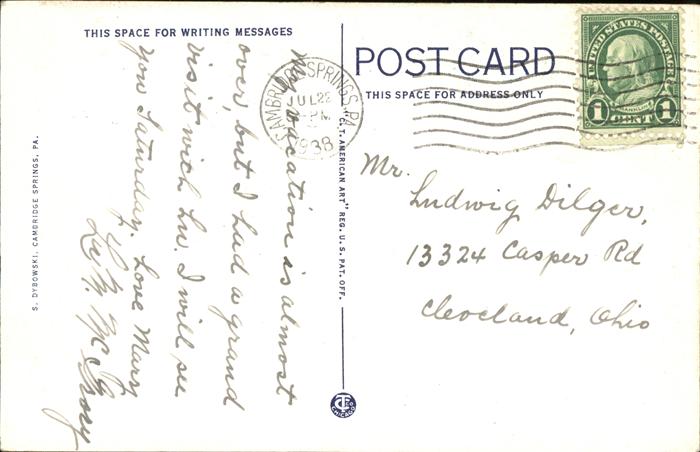 THIS SPACE FOR WRITING MESSAGES
My vacation is almost
over, but I had a grand
visit with Lu. I will see
you Saturday. Love Mary
POST CARD
THIS SPACE FOR ADDRESS ONLY
CAMBRIDGE SPRINGS, PA.
JUL 22
PM
1938
UNITED STATES POSTAGE
FRANKLIN
1 CENT 1
Mr. Ludwig Dilger,
13324 Casper Rd
Cleveland, Ohio
S. DYBOWSKI, CAMBRIDGE SPRINGS, PA.
"C.T. AMERICAN ART" REG. U.S. PAT. OFF.
CT
CHICAGO